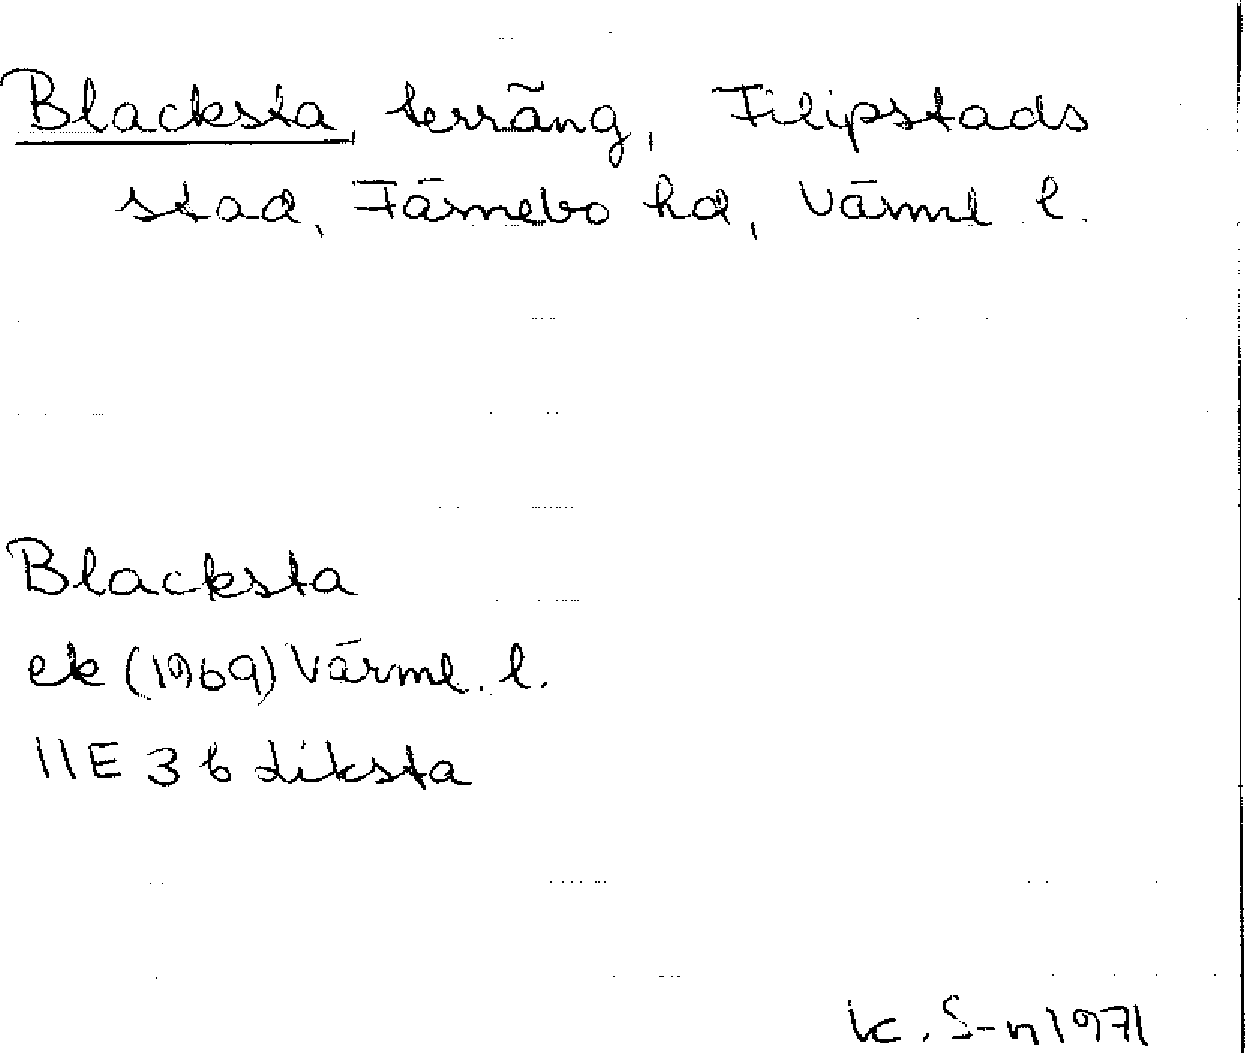 Blacksta, terräng, Filipstads
stad, Färnebo hd, Värml l.
Blacksta
ek (1969) Värml. l.
11E 3b Liksta
K. S-n 1971